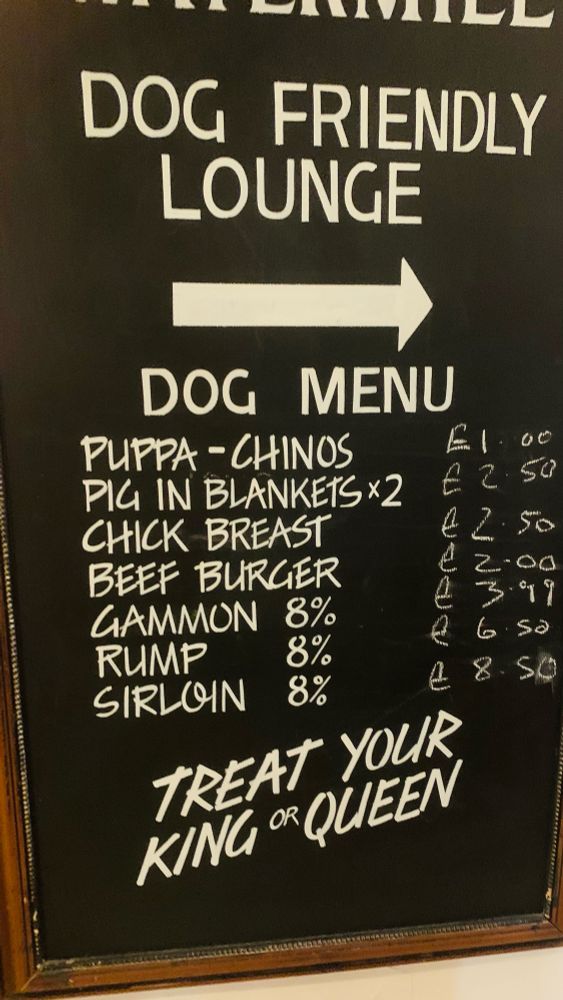 WATERMILL
DOG FRIENDLY
LOUNGE
DOG MENU
PUPPA-CHINOS £1.00
PIG IN BLANKETS x2 £2.50
CHICK BREAST £2.50
BEEF BURGER £2.00
GAMMON 8% £3.99
RUMP 8% £6.50
SIRLOIN 8% £8.50
TREAT YOUR
KING OR QUEEN